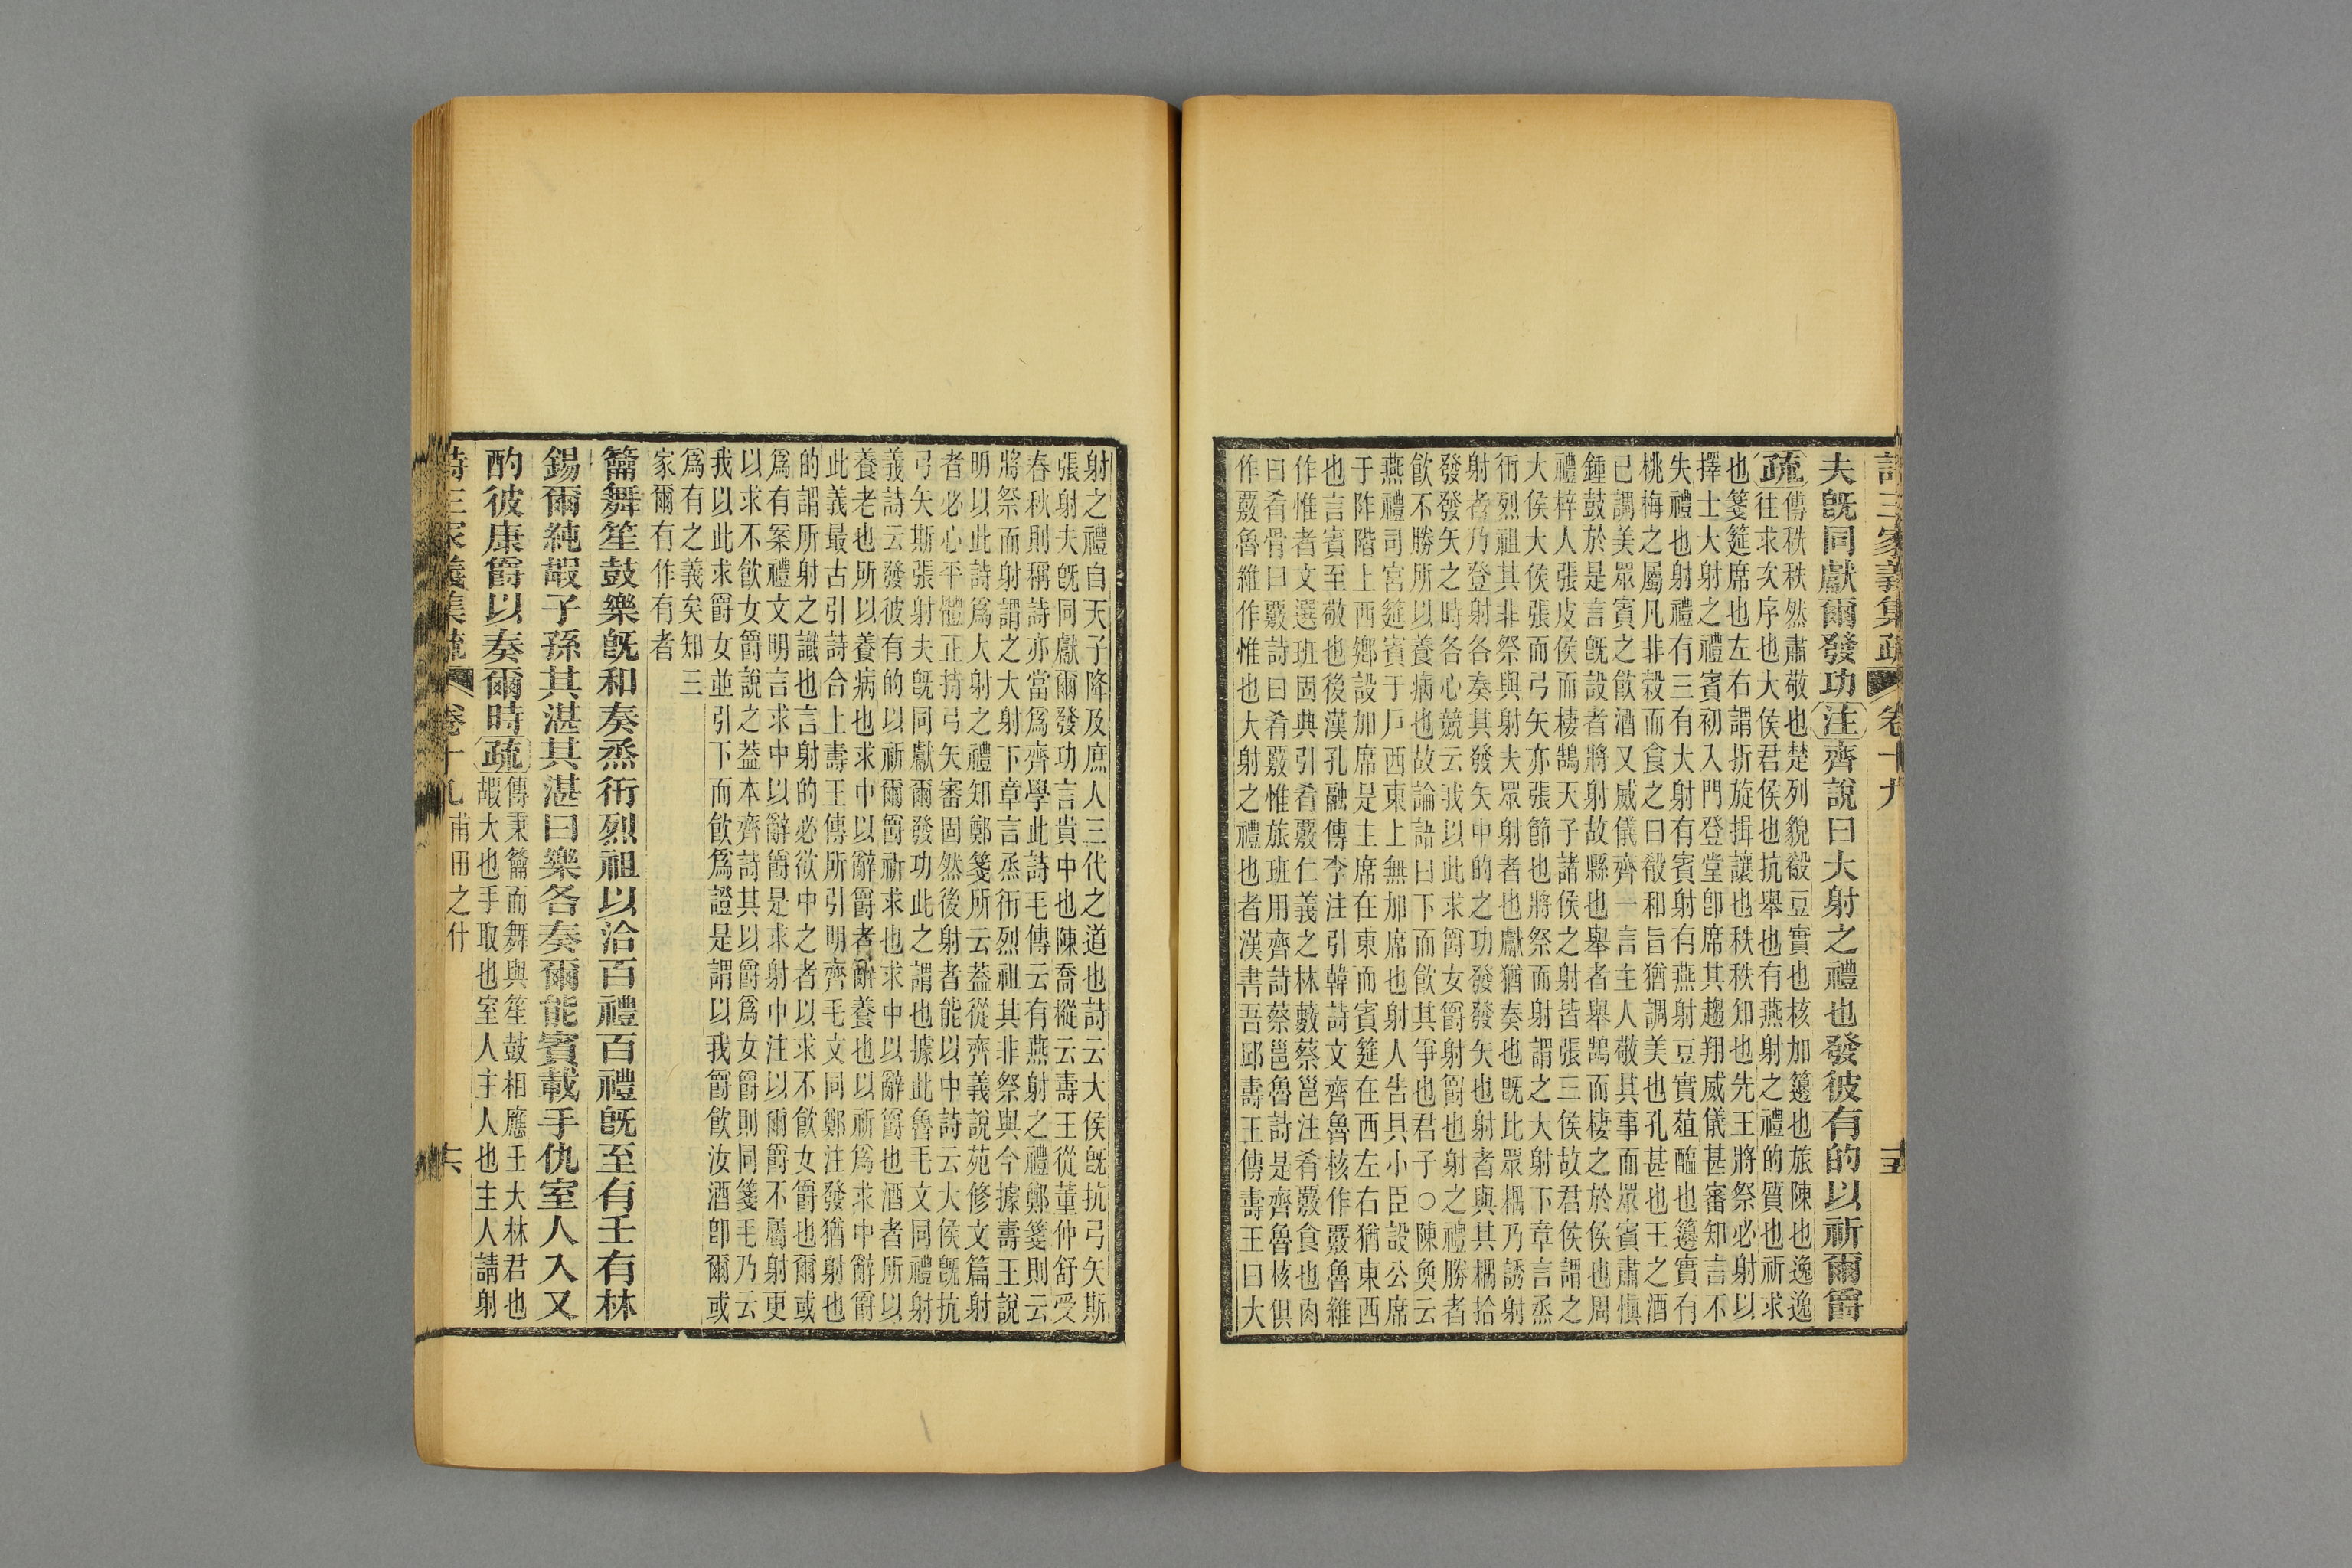 詩三家義集疏 卷十九 十五
夫旣同獻爾發功注齊說曰大射之禮也發彼有的以祈爾爵
疏傳秩秩然肅敬也楚列貌殽豆實也核加籩也旅陳也逸逸
往求次序也大侯君侯也抗舉也有燕射之禮的質也祈求
也箋筵席也左右謂折旋揖讓也秩秩知也先王將祭必射以
擇士大射之禮賓初入門登堂卽席其趨翔威儀甚審知言不
失禮也射禮有三有大射有賓射有燕射豆實葅醢也籩實有
桃梅之屬凡非穀而食之曰殽和旨猶調美也孔甚也王之酒
已調美眾賓之飮酒又威儀齊一言主人敬其事而眾賓肅愼
鍾鼓於是言旣設者將射故縣也舉者舉鵠而棲之於侯也周
禮梓人張皮侯而棲鵠天子諸侯之射皆張三侯故君侯謂之
大侯大侯張而弓矢亦張節也將祭而射謂之大射下章言烝
衎烈祖其非祭與射夫眾射者也獻猶奏也旣比眾耦乃誘射
射者乃登射各奏其發矢中的之功發發矢也射者與其耦拾
發發矢之時各心競云我以此求爵女爵射爵也射之禮勝者
飮不勝所以養病也故論語曰下而飮其爭也君子○陳奐云
燕禮司宮筵賓于戶西東上無加席也射人告具小臣設公席
于阼階上西鄉設加席是主席在東而賓筵在西左右猶東西
也言賓至敬也後漢孔融傳李注引韓詩文齊魯核作覈魯維
作惟者文選班固典引肴覈仁義之林藪蔡邕注肴覈食也肉
曰肴骨曰覈詩曰肴覈惟旅班用齊詩蔡邕魯詩是齊魯核俱
作覈魯維作惟也大射之禮也者漢書吾邱壽王傳壽王曰大
射之禮自天子降及庶人三代之道也詩云大侯旣抗弓矢斯
張射夫旣同獻爾發功言貴中也陳喬樅云壽王從董仲舒受
春秋則稱詩亦當爲齊學此詩毛傳云有燕射之禮鄭箋則云
將祭而射謂之大射下章言烝衎烈祖其非祭與今據壽王說
明以此詩爲大射之禮知鄭箋所云葢從齊義說苑修文篇射
者必心平體正持弓矢審固然後射者能以中詩云大侯旣抗
弓矢斯張射夫旣同獻爾發功此之謂也據此魯毛文同禮射
義詩云發彼有的以祈爾爵祈求也求中以辭爵也酒者所以
養老也所以養病也求中以辭爵者辭養也以祈爲求中辭爵
此義最古引詩合上壽王傳所引明齊毛文同鄭注發猶射也
的謂所射之識也言射的必欲中之者以求不飮女爵也爾或
爲有案禮文明言求中以辭爵是求射中注以爾爵不屬射更
以求不飮女爵說之葢本齊詩其以爵爲女爵則同箋毛乃云
我以此求爵女並引下而飮爲證是謂以我爵飮汝酒卽爾或
爲有之義矣知三
家爾有作有者
籥舞笙鼓樂旣和奏烝衎烈祖以洽百禮百禮旣至有壬有林
錫爾純嘏子孫其湛其湛曰樂各奏爾能賓載手仇室人入又
酌彼康爵以奏爾時疏傳秉籥而舞與笙鼓相應壬大林君也
嘏大也手取也室人主人也主人請射
詩三家義集疏 卷十九 甫田之什 十六